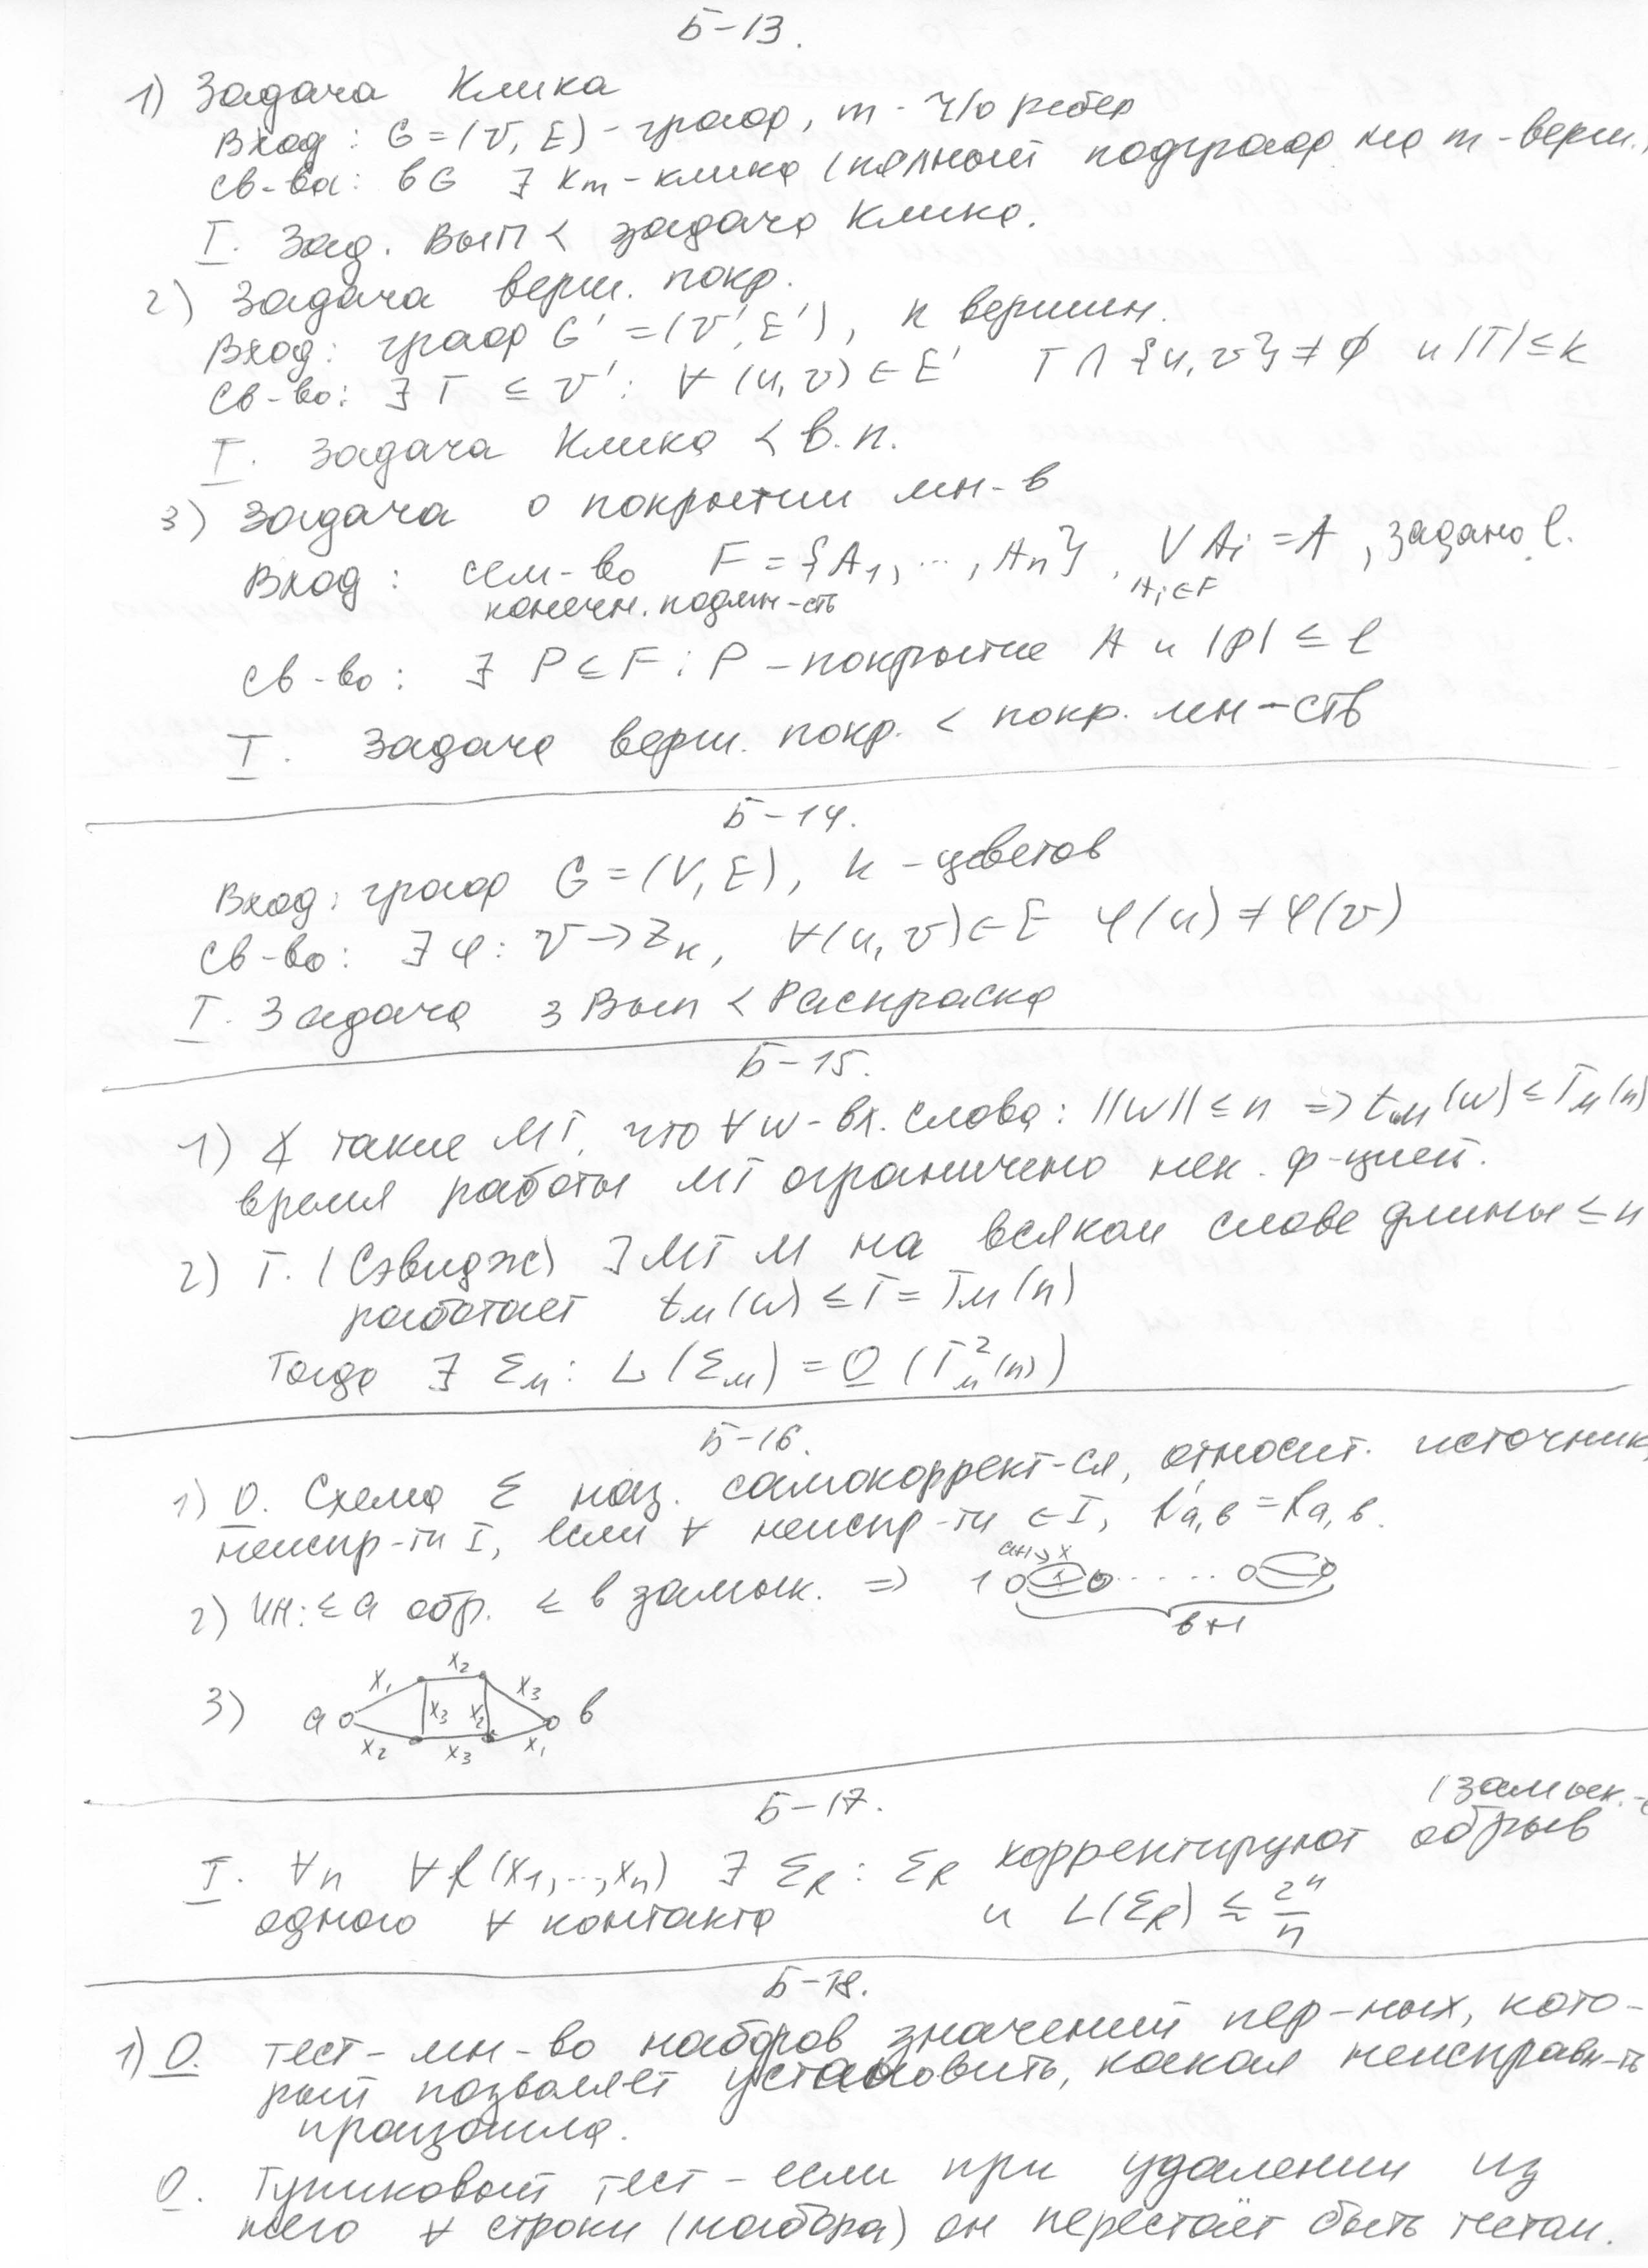 Б-13.
1) Задача Клика
Вход: G=(V, E) - граф, m - ч/о ребер
св-ва: в G ∃ Km - клика (полный подграф на m-верш.)
Т. Зад. ВЫП < задача Клика.
2) Задача верш. покр.
Вход: граф G' = (V', E'), к вершин.
Св-во: ∃ T ⊆ V': ∀ (u, v) ∈ E' T ∩ {u, v} ≠ ∅ и |T| ≤ k
Т. Задача Клика < В.П.
3) Задача о покрытии мн-в
Вход: сем-во F = {A1, ..., An}, ∪ Ai = A, задано l.
конечн. подмн-сть Ai∈F
св-во: ∃ P ⊆ F: P - покрытие A и |P| ≤ l
Т. Задача верш. покр. < покр. мн-ств
Б-14.
Вход: граф G = (V, E), к - цветов
Св-во: ∃ φ: V → Zк, ∀(u, v) ∈ E φ(u) ≠ φ(v)
Т. Задача 3 Вып < Раскраска
Б-15.
1) ∀ такие МТ, что ∀ w - вх. слова: ||w|| ≤ n ⇒ tм(w) ≤ Tм(n)
время работы МТ ограничено нек. ф-цией.
2) Т. (Сэвидж) ∃ МТ М на всяком слове длины ≤ n
работает tм(w) ≤ T = Tм(n)
Тогда ∃ Σм: L(Σм) = O(Tм²(n))
Б-16.
1) О. Схема Σ наз. самокоррект-ся, относит. источник.
неиспр-ти I, если ∀ неиспр-ти ∈ I, f'a,в = fa,в.
2) ИН: ≤ a обр. ≤ в замык. ⇒ 1 a+1 → x
в+1
3) a x1 x2 x3 x3 x2 x2 x3 x1 в
Б-17.
(замык.-
Т. ∀n ∀ f(x1,...,xn) ∃ Σf: Σf корректируют обрыв
одного ∀ контакта и L(Σf) ≲ 2ⁿ/n
Б-18.
1) О. тест - мн-во наборов значений пер-ных, кото-
рый позволяет установить, какая неисправн-ть
произошла.
О. Тупиковый тест - если при удалении из
него ∀ строки (набора) он перестаёт быть тестом.